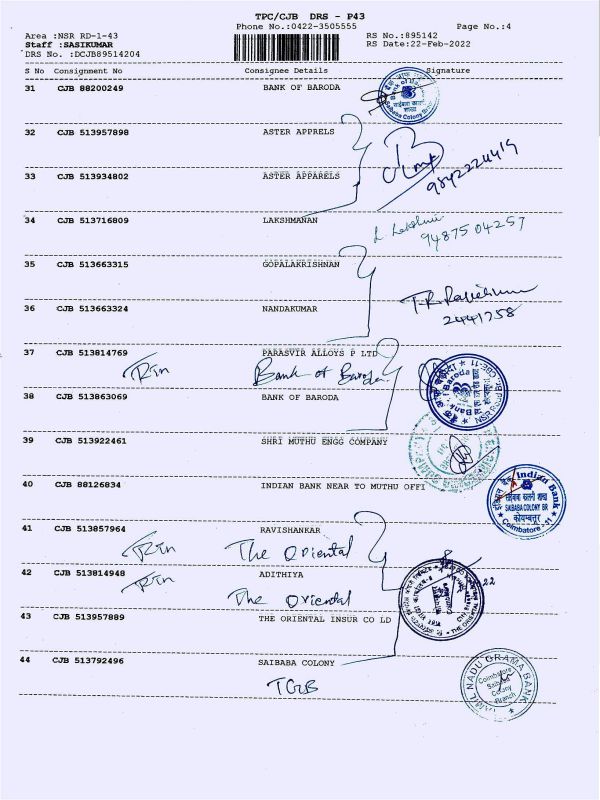 TPC/CJB DRS - P43
Phone No.:0422-3505555 Page No.:4
Area :NSR RD-1-43 RS No.:895142
Staff :SASIKUMAR RS Date:22-Feb-2022
DRS No. :DCJB89514204
S No Consignment No Consignee Details Signature
31 CJB 88200249 BANK OF BARODA
32 CJB 513957898 ASTER APPRELS
9842224419
33 CJB 513934802 ASTER APPARELS
34 CJB 513716809 LAKSHMANAN
9487504257
35 CJB 513663315 GOPALAKRISHNAN
36 CJB 513663324 NANDAKUMAR
2441758
37 CJB 513814769 PARASVIR ALLOYS P LTD
RTn Bank of Baroda
38 CJB 513863069 BANK OF BARODA
39 CJB 513922461 SHRI MUTHU ENGG COMPANY
40 CJB 88126834 INDIAN BANK NEAR TO MUTHU OFFI
Indian Bank
SAIBABA COLONY BR
Coimbatore - 11
41 CJB 513857964 RAVISHANKAR
RTn The Oriental
42 CJB 513814948 ADITHIYA
RTn The Oriental
22
43 CJB 513957889 THE ORIENTAL INSUR CO LD
44 CJB 513792496 SAIBABA COLONY
TGB
TAMIL NADU GRAMA BANK
Coimbatore
Saibaba
Colony
Branch